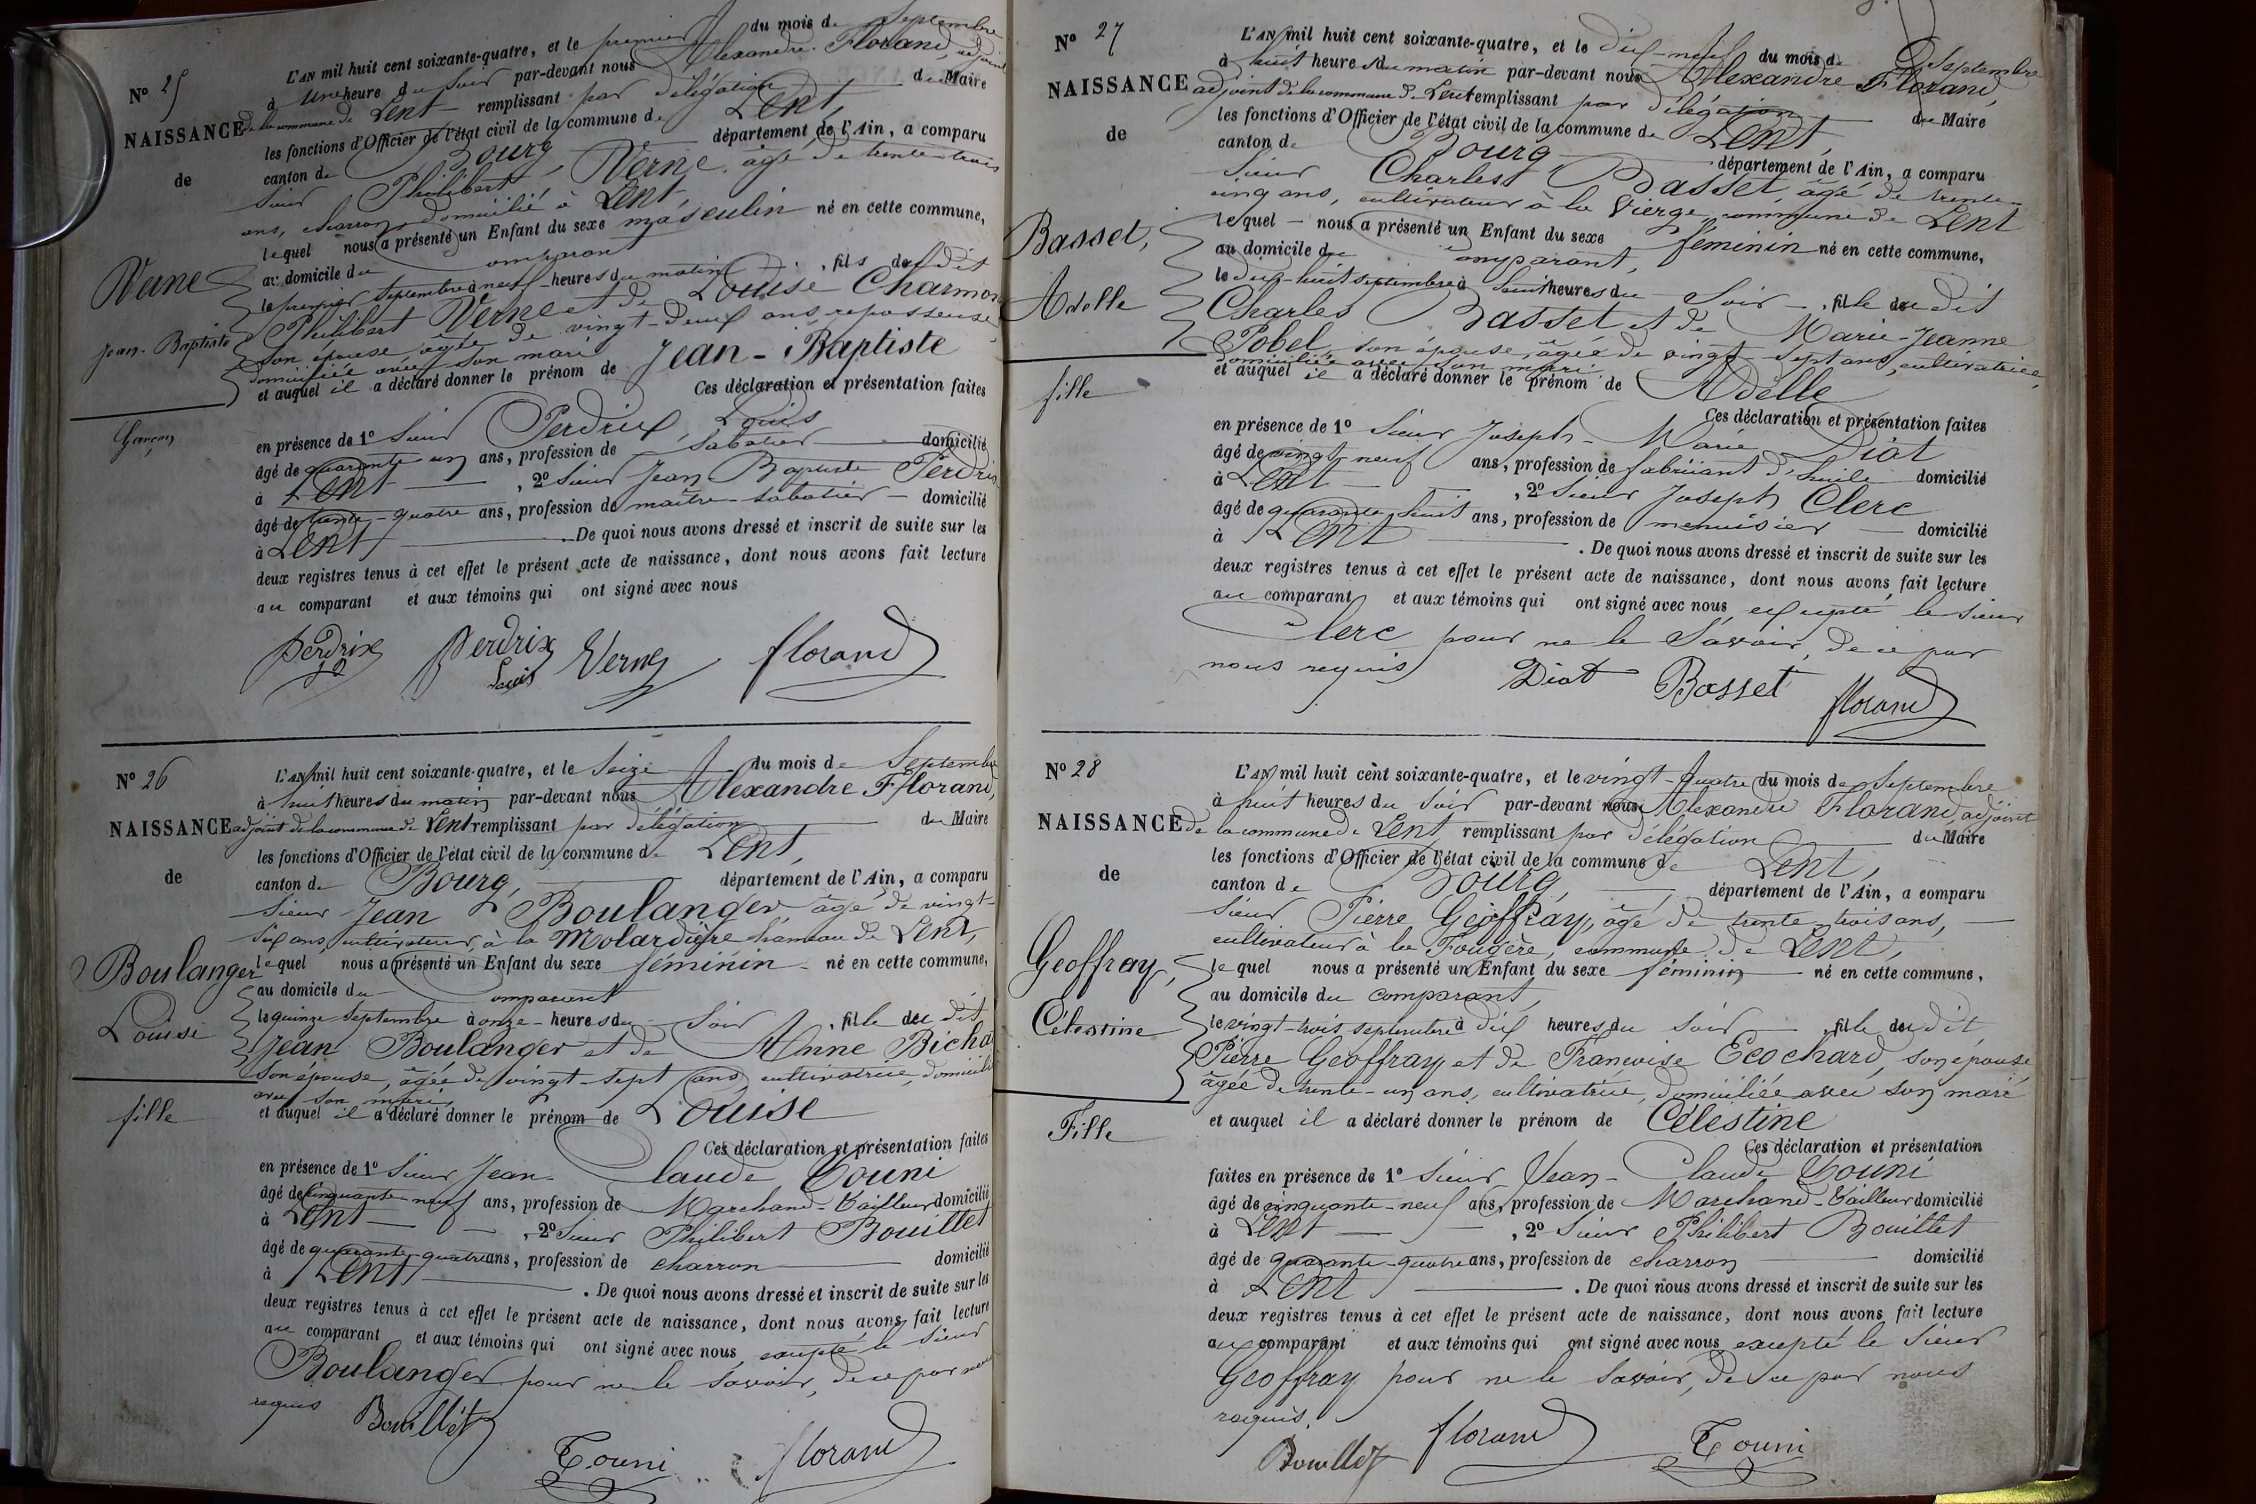 N° 25
NAISSANCE
de
Verne
Jean-Baptiste
Garçon
L'AN mil huit cent soixante-quatre, et le premier du mois de Septembre
à une heure du soir par-devant nous Alexandre Florand, adjoint
de la commune de Lent remplissant par délégation du Maire
les fonctions d'Officier de l'état civil de la commune de Lent,
canton de Bourg département de l'Ain, a comparu
sieur Philibert Verne âgé de trente-trois
ans, charron, domicilié à Lent,
lequel nous a présenté un Enfant du sexe masculin né en cette commune,
au domicile du comparant
le premier septembre à neuf heures du matin, fils du dit
Philibert Verne et de Louise Charmon
son épouse âgée de vingt-deux ans, repasseuse,
domiciliée avec son mari
et auquel il a déclaré donner le prénom de Jean-Baptiste
Ces déclaration et présentation faites
en présence de 1° sieur Perdrix, Louis
âgé de quarante-un ans, profession de sabotier domicilié
à Lent, 2° sieur Jean Baptiste Perdrix
âgé de trente-quatre ans, profession de maître-sabotier domicilié
à Lent. De quoi nous avons dressé et inscrit de suite sur les
deux registres tenus à cet effet le présent acte de naissance, dont nous avons fait lecture
au comparant et aux témoins qui ont signé avec nous
Perdrix Perdrix Louis Verne florand
N° 26
NAISSANCE
de
Boulanger
Louise
fille
L'AN mil huit cent soixante-quatre, et le seize du mois de Septembre
à huit heures du matin par-devant nous Alexandre Florand,
adjoint de la commune de Lent remplissant par délégation du Maire
les fonctions d'Officier de l'état civil de la commune de Lent,
canton de Bourg, département de l'Ain, a comparu
sieur Jean Boulanger âgé de vingt-
six ans, cultivateur, à la Molardière hameau de Lent,
lequel nous a présenté un Enfant du sexe féminin né en cette commune,
au domicile du comparant
le quinze septembre à onze heures du soir, fille du dit
Jean Boulanger et de Anne Bicha
son épouse, âgée de vingt-sept ans, cultivatrice, domiciliée
avec son mari,
et auquel il a déclaré donner le prénom de Louise
Ces déclaration et présentation faites
en présence de 1° sieur Jean-Claude Touni
âgé de cinquante-neuf ans, profession de Marchand-Tailleur domicilié
à Lent, 2° sieur Philibert Bouillet
âgé de quarante-quatre ans, profession de charron domicilié
à Lent. De quoi nous avons dressé et inscrit de suite sur les
deux registres tenus à cet effet le présent acte de naissance, dont nous avons fait lecture
au comparant et aux témoins qui ont signé avec nous excepté le sieur
Boulanger pour ne le savoir, de ce par nous
requis
Bouillet Touni florand
N° 27
NAISSANCE
de
Basset,
Adelle
fille
L'AN mil huit cent soixante-quatre, et le dix-neuf du mois de Septembre
à huit heures du matin par-devant nous Alexandre Florand,
adjoint de la commune de Lent remplissant par délégation du Maire
les fonctions d'Officier de l'état civil de la commune de Lent,
canton de Bourg département de l'Ain, a comparu
sieur Charles Basset, âgé de trente-
cinq ans, cultivateur à la Vierge, commune de Lent
lequel nous a présenté un Enfant du sexe féminin né en cette commune,
au domicile du comparant,
le dix-huit septembre à huit heures du soir, fille du dit
Charles Basset et de Marie-Jeanne
Pobel, son épouse, âgée de vingt-sept ans, cultivatrice,
domiciliée avec son mari.
et auquel il a déclaré donner le prénom de Adelle
Ces déclaration et présentation faites
en présence de 1° sieur Joseph-Marie Diat
âgé de vingt-neuf ans, profession de fabricant d'huile domicilié
à Lent, 2° sieur Joseph Clerc
âgé de quarante-huit ans, profession de menuisier domicilié
à Lent. De quoi nous avons dressé et inscrit de suite sur les
deux registres tenus à cet effet le présent acte de naissance, dont nous avons fait lecture
au comparant et aux témoins qui ont signé avec nous excepté le sieur
Clerc pour ne le savoir, de ce par
nous requis
Diat Basset florand
N° 28
NAISSANCE
de
Geoffray,
Célestine
Fille
L'AN mil huit cent soixante-quatre, et le vingt-quatre du mois de Septembre
à huit heures du soir par-devant nous Alexandre Florand, adjoint
de la commune de Lent remplissant par délégation du Maire
les fonctions d'Officier de l'état civil de la commune de Lent,
canton de Bourg, département de l'Ain, a comparu
sieur Pierre Geoffray, âgé de trente-trois ans,
cultivateur à la Fougère, commune de Lent,
lequel nous a présenté un Enfant du sexe féminin né en cette commune,
au domicile du comparant,
le vingt-trois septembre à dix heures du soir, fille du dit
Pierre Geoffray et de Françoise Ecochard, son épouse
âgée de trente-un ans, cultivatrice, domiciliée avec son mari
et auquel il a déclaré donner le prénom de Célestine
Ces déclaration et présentation
faites en présence de 1° sieur Jean-Claude Touni
âgé de cinquante-neuf ans, profession de Marchand-Tailleur domicilié
à Lent, 2° sieur Philibert Bouillet
âgé de quarante-quatre ans, profession de charron domicilié
à Lent. De quoi nous avons dressé et inscrit de suite sur les
deux registres tenus à cet effet le présent acte de naissance, dont nous avons fait lecture
au comparant et aux témoins qui ont signé avec nous excepté le sieur
Geoffray pour ne le savoir, de ce par nous
requis.
Bouillet florand Touni